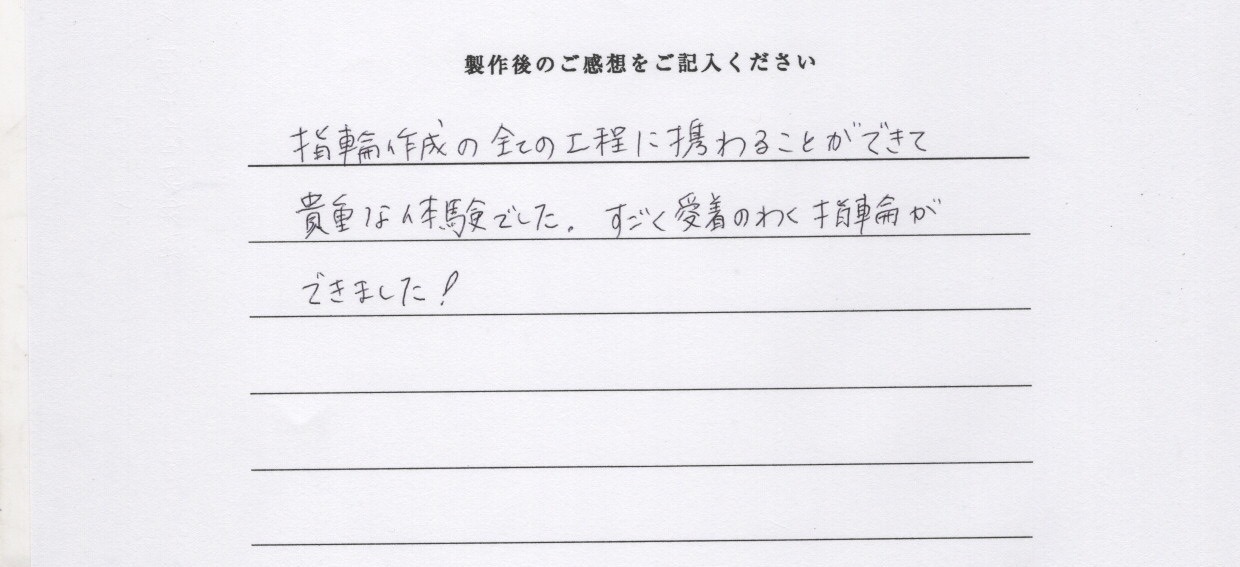 製作後のご感想をご記入ください
指輪作成の全ての工程に携わることができて
貴重な体験でした。すごく愛着のわく指輪が
できました!